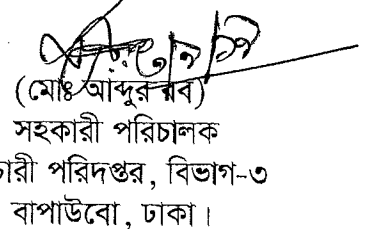 (মোঃ আব্দুর রব)
সহকারী পরিচালক
চারী পরিদপ্তর, বিভাগ-৩
বাপাউবো, ঢাকা।